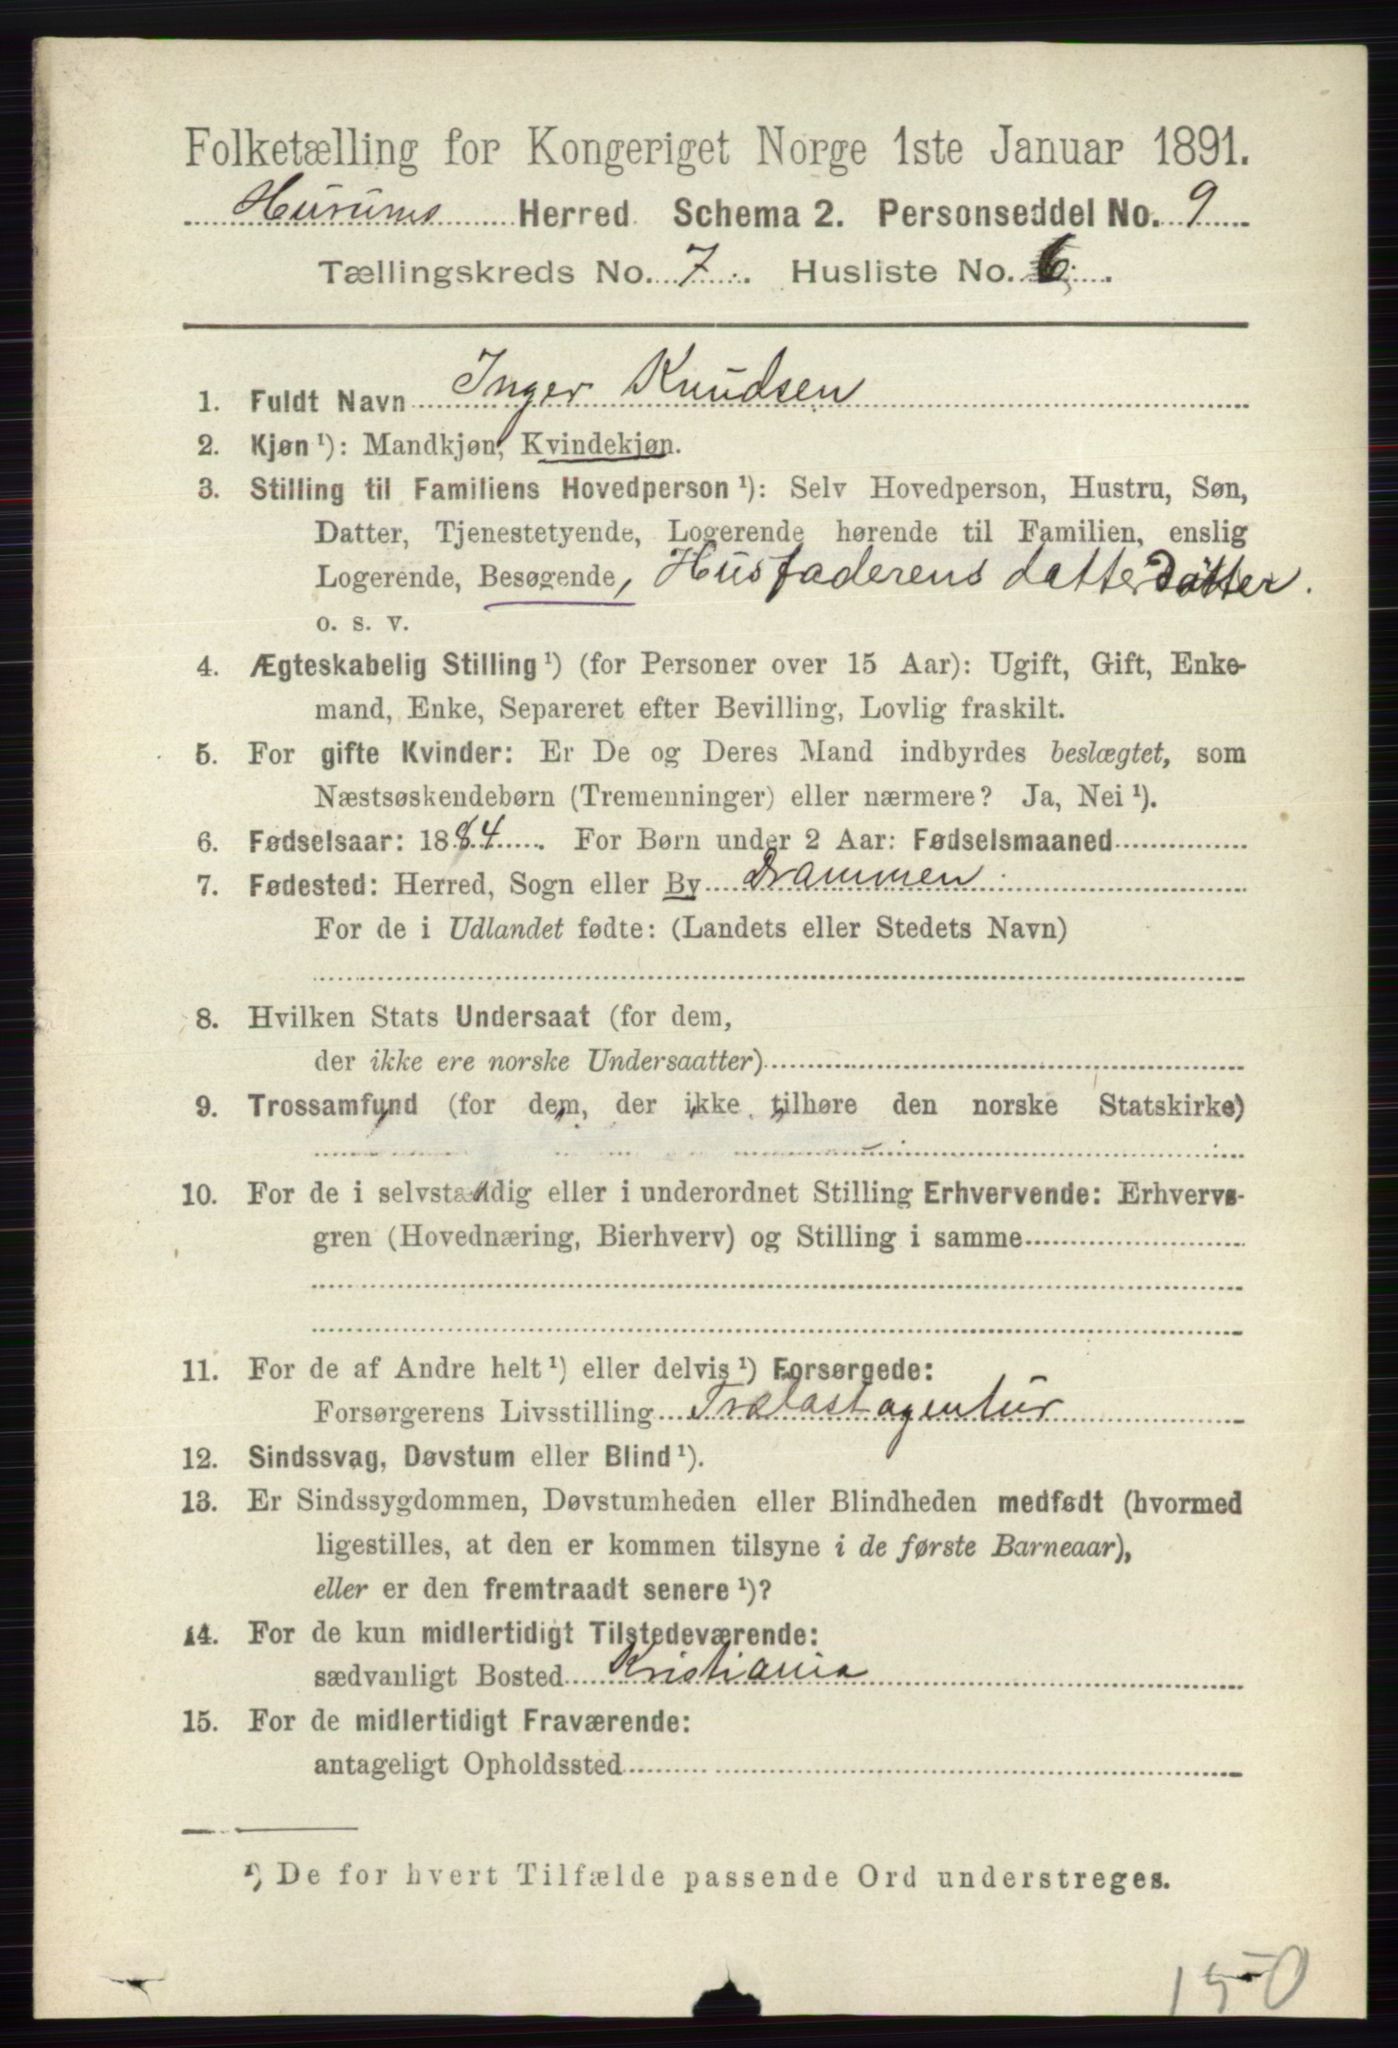 Folketælling for Kongeriget Norge 1ste Januar 1891.
Hurums Herred Schema 2. Personseddel No. 9
Tællingskreds No. 7. Husliste No. 6.
1. Fuldt Navn Inger Knudsen
2. Kjøn ¹): Mandkjøn, Kvindekjøn.
3. Stilling til Familiens Hovedperson ¹): Selv Hovedperson, Hustru, Søn,
Datter, Tjenestetyende, Logerende hørende til Familien, enslig
Logerende, Besøgende, Husfaderens datterdatter.
o. s. v.
4. Ægteskabelig Stilling ¹) (for Personer over 15 Aar): Ugift, Gift, Enke-
mand, Enke, Separeret efter Bevilling, Lovlig fraskilt.
5. For gifte Kvinder: Er De og Deres Mand indbyrdes beslægtet, som
Næstsøskendebørn (Tremenninger) eller nærmere? Ja, Nei ¹).
6. Fødselsaar: 1884. For Børn under 2 Aar: Fødselsmaaned
7. Fødested: Herred, Sogn eller By Drammen
For de i Udlandet fødte: (Landets eller Stedets Navn)
8. Hvilken Stats Undersaat (for dem,
der ikke ere norske Undersaatter)
9. Trossamfund (for dem, der ikke tilhøre den norske Statskirke)
10. For de i selvstændig eller i underordnet Stilling Erhvervende: Erhvervs-
gren (Hovednæring, Bierhverv) og Stilling i samme
11. For de af Andre helt ¹) eller delvis ¹) Forsørgede:
Forsørgerens Livsstilling Trælastagentur
12. Sindssvag, Døvstum eller Blind ¹).
13. Er Sindssygdommen, Døvstumheden eller Blindheden medfødt (hvormed
ligestilles, at den er kommen tilsyne i de første Barneaar),
eller er den fremtraadt senere ¹)?
14. For de kun midlertidigt Tilstedeværende:
sædvanligt Bosted Kristiania
15. For de midlertidigt Fraværende:
antageligt Opholdssted
¹) De for hvert Tilfælde passende Ord understreges.
150